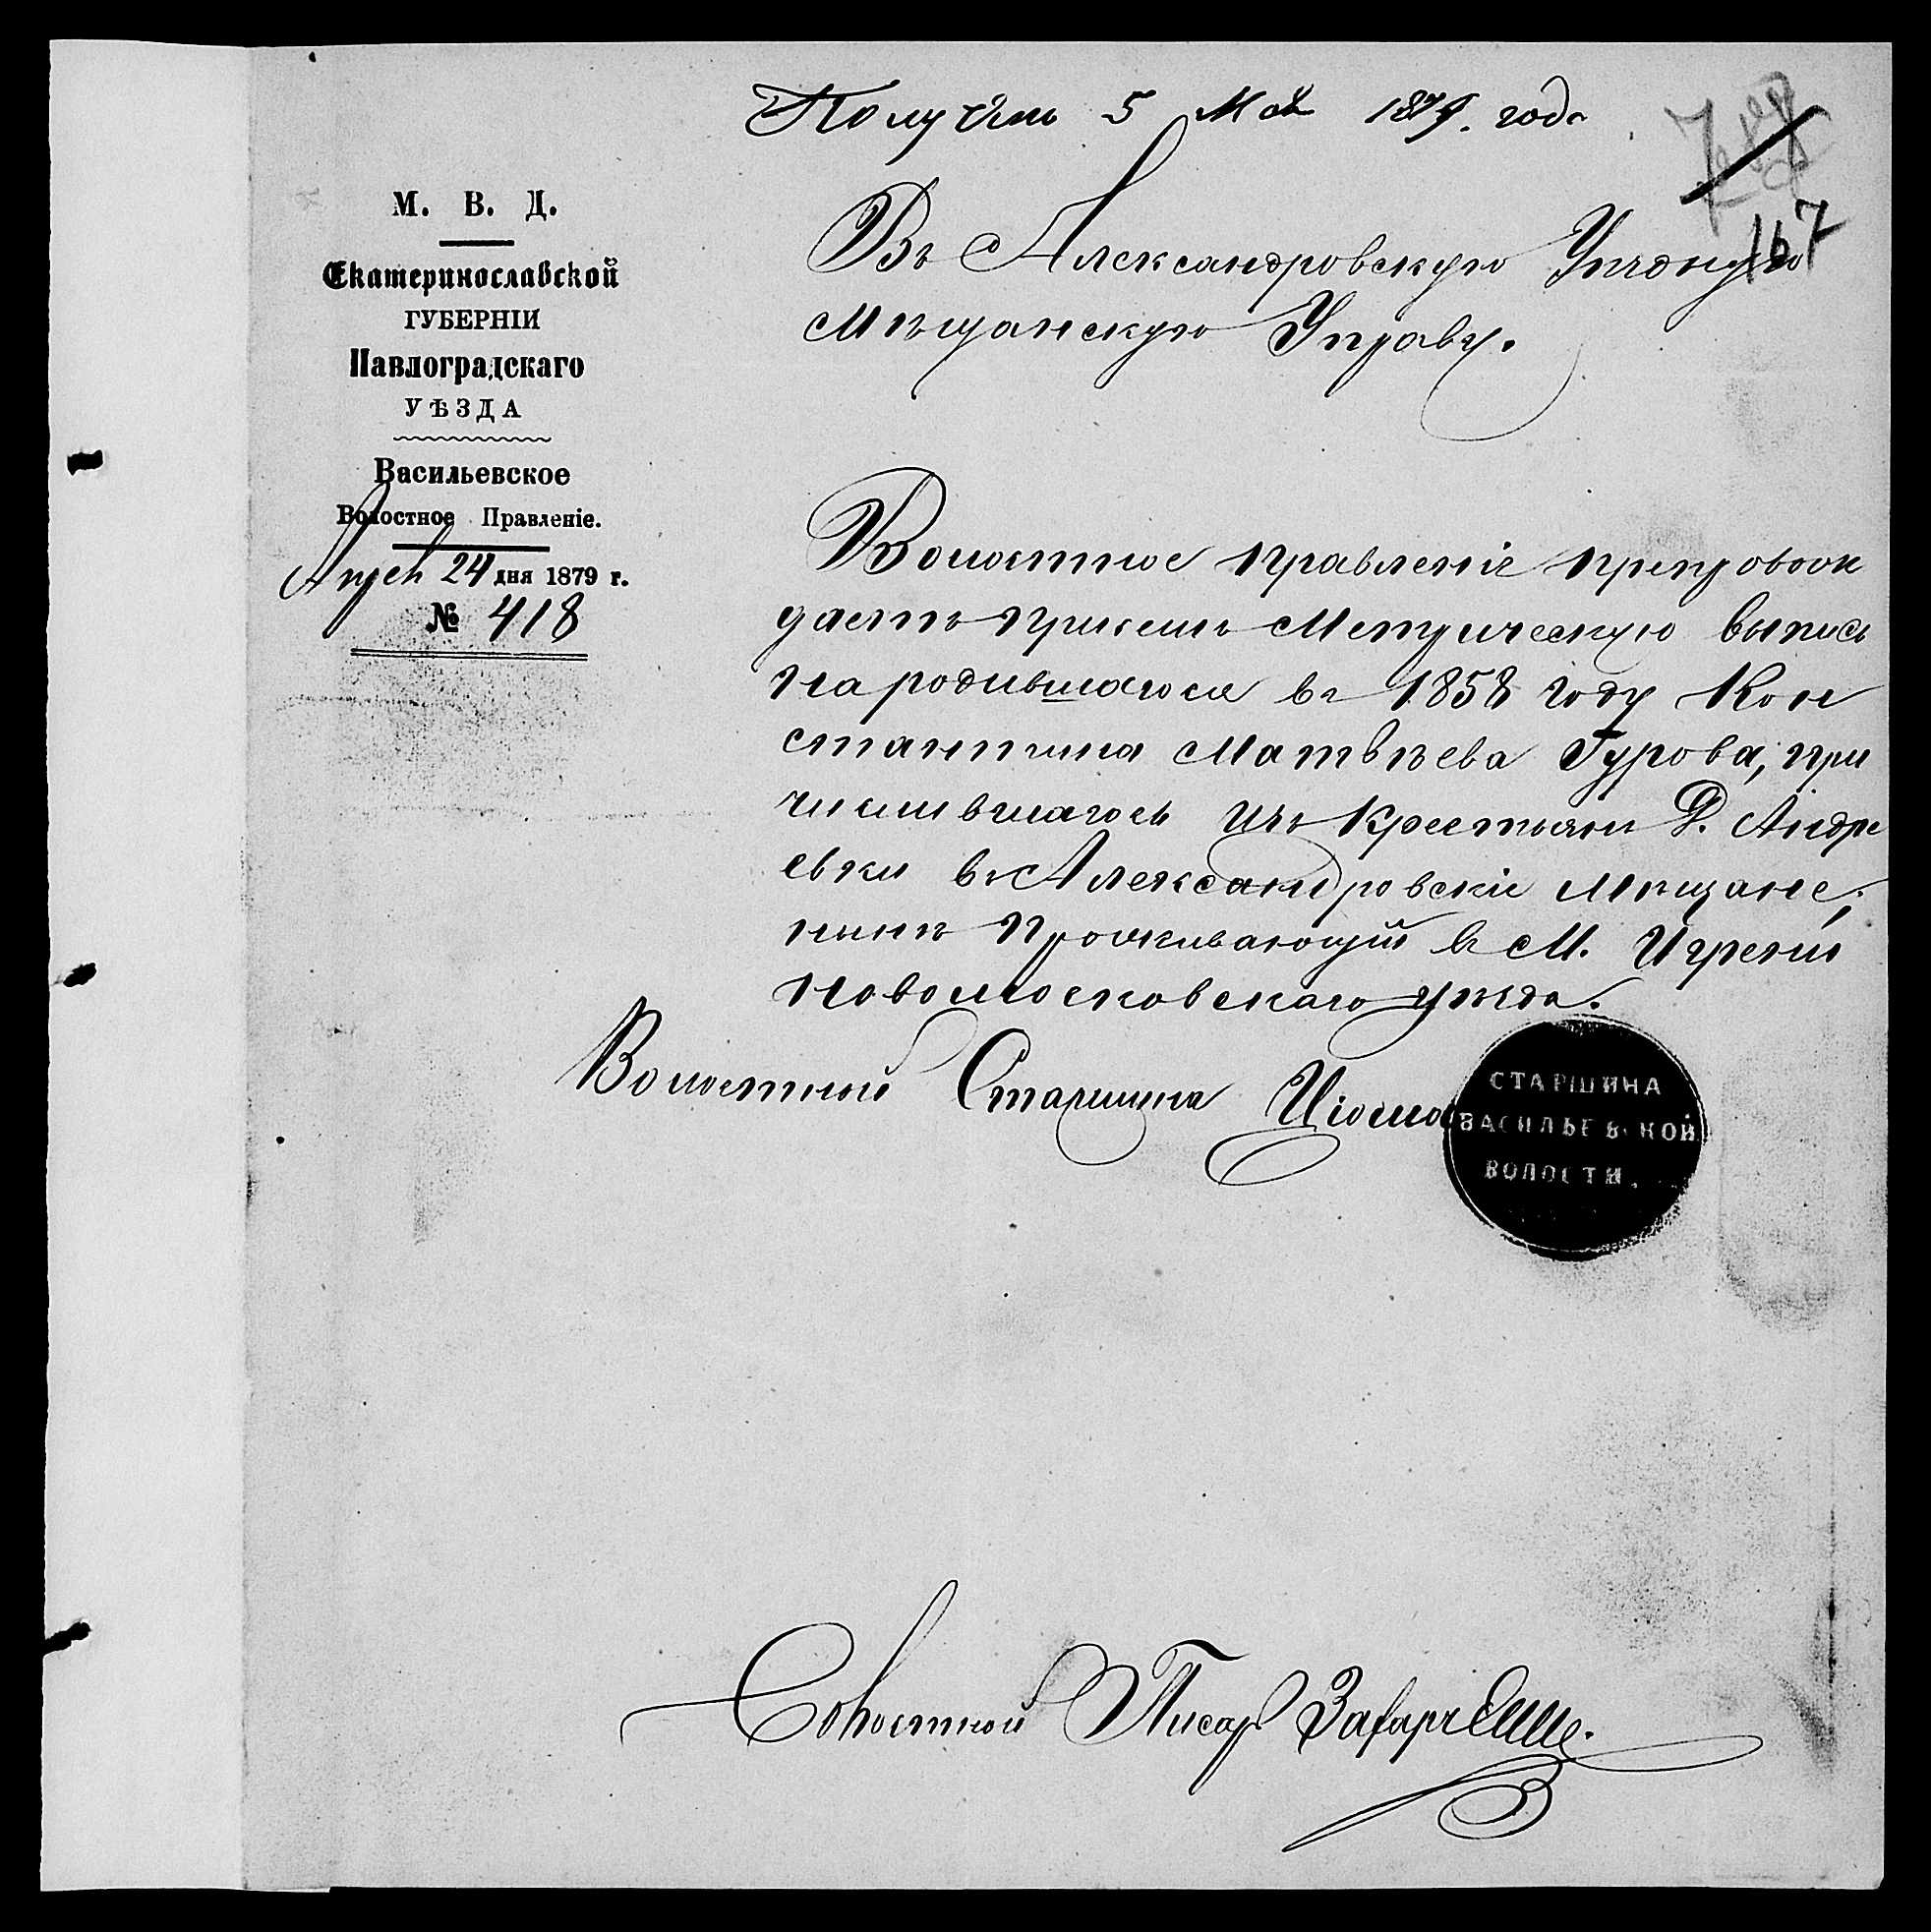 Получено 5 Мая 1879. года
167
М. В. Д.
Екатеринославской
ГУБЕРНІИ
Павлоградскаго
УѢЗДА
Васильевское
Волостное Правленіе.
24 дня 1879 г.
№ 418
Въ Александровскую Уѣздную
Мѣщанскую Управу.
Волостное правленіе препровож
даетъ при семъ Метрическую выпись
народившагося въ 1858 году Кон
стантина Матвѣева Гурова, при
числившагось изъ Крестьянъ Д. Андре
евки въ Александровскіе Мѣщане,
нынѣ проживающій въ М. Игрени
Новомосковскаго уѣзда.
Волостный Старшина
СТАРШИНА
ВАСИЛЬЕВСКОЙ
ВОЛОСТИ.
Волостной Писарь